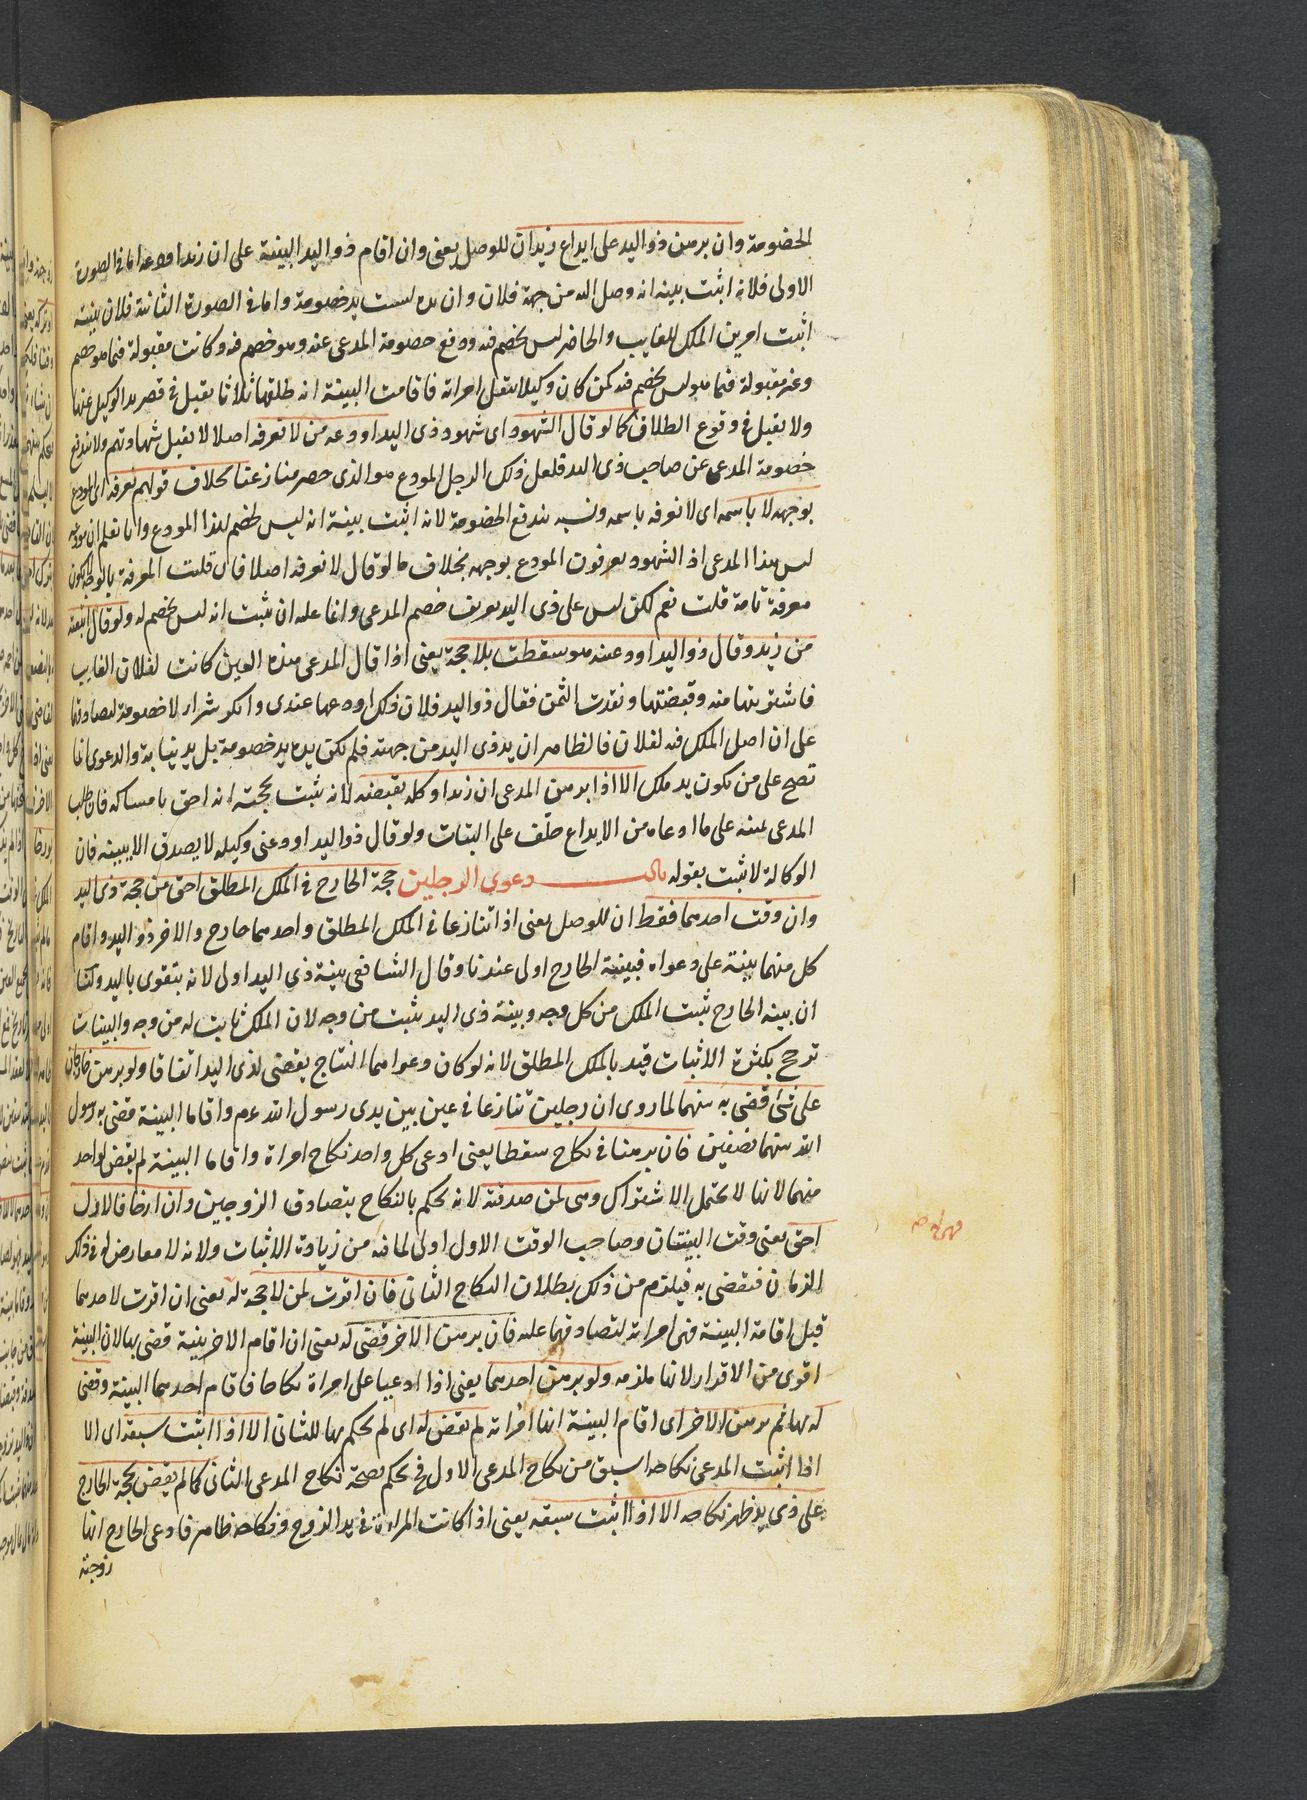 الخصومة وان برهن ذو اليد على ايداع زيد ان للوصل يعنى وان اقام ذو اليد البينة على ان زيدا اودعه اما فى الصورة
الاولى فلانه اثبت ببينه انه وصل اليه من جهة فلان وان يده ليست يد خصومة واما فى الصورة الثانية فلان بينته
اثبت امرين الملك للغايب والحاضر ليس بخصم فيه ودفع خصومة المدعى عنه وهو خصم فيه وكانت مقبولة فيما هو خصم
وغير مقبولة فيما هو ليس بخصم فيه كمن كان وكيلا بنقل امراته فاقامت البينة انه طلقها ثلاثا يقبل فى قصر يد الوكيل عنها
ولا يقبل فى وقوع الطلاق كما لو قال الشهود اى شهود ذى اليد اودعه من لا نعرفه اصلا لا يقبل شهادتهم ولا تندفع
خصومة المدعى عن صاحب ذى اليد فلعل ذلك الرجل المودع هو الذى حصر منازعتا بخلاف قولهم نعرفه اى المودع
بوجهه لا باسمه اى لا نعرفه باسمه ونسبه يندفع الخصومة لانه اثبت ببينة انه ليس بخصم لهذا المودع وانا نعلم ان مودعه
ليس هذا المدعى اذ الشهود يعرفون المودع بوجهه بخلاف ما لو قال لا نعرفه اصلا فان قلت المعرفة بالوجه لا يكون
معرفة تامة قلت نعم لكن ليس على ذى اليد تعريف خصم المدعى وانما عليه ان يثبت انه ليس بخصم له ولو قال ابتعته
من زيد وقال ذو اليد اودعنيه هو سقطت بلا حجة يعنى اذا قال المدعى هذه العين كانت لفلان الغايب
فاشتريتها منه وقبضتها ونقدت الثمن فقال ذو اليد فلان ذلك اودعها عندى وانكر شراه لا خصومة لتصادقهما
على ان اصل الملك فيه لفلان فالظاهر ان يد ذى اليد من جهته فلم تكن يده يد خصومة بل يد نيابة والدعوى انما
تصح على من يكون يد ملك الا اذا برهن المدعى ان زيدا وكله بقبضه لانه يثبت بحجته انه احق بامساكه فان طلب
المدعى يمينه على ما ادعاه من الايداع حلف على البتات ولو قال ذو اليد اودعنى وكيله لا يصدق الا ببينة فان
الوكالة لا تثبت بقوله باب دعوى الرجلين حجة الخارج فى الملك المطلق احق من حجة ذى اليد
وان وقت احدهما فقط ان للوصل يعنى اذا تنازعا فى الملك المطلق واحدهما خارج والاخر ذو اليد واقام
كل منهما بينة على دعواه فبينة الخارج اولى عندنا وقال الشافعى بينة ذى اليد اولى لانه يتقوى باليد ولنا
ان بينة الخارج تثبت الملك من كل وجه وبينة ذى اليد تثبت من وجه لان الملك ثابت له من وجه والبينات
ترجح بكثرة الاثبات قيد بالملك المطلق لانه لو كان دعواهما النتاج يقضى لذى اليد اتفاقا ولو برهن خارجان
على شئ قضى به بينهما لما روى ان رجلين تنازعا فى عين بين يدى رسول الله عم واقاما البينة قضى به رسول
الله بينهما نصفين فان برهنا فى نكاح سقطا يعنى ادعى كل واحد نكاح امراة واقاما البينة لم يقض لواحد
منهما لانها لا يحتمل الاشتراك وهى لمن صدقته لانه يحكم بالنكاح بتصادق الزوجين وان ارخا فالاول
احق يعنى وقت البينتان وصاحب الوقت الاول اولى لما فيه من زيادة الاثبات ولانه لا معارض له فى ذلك
الزمان فيقضى به فيلزم من ذلك بطلان النكاح الثانى فان اقرت لمن لا حجة له يعنى ان اقرت لاحدهما
قبل اقامة البينة فهى امراته لتصادقهما عليه فان برهن الاخر قضى له يعنى ان اقام الاخر بينة قضى بها لان البينة
اقوى من الاقرار لانها ملزمه ولو برهن احدهما يعنى اذا ادعيا على امراة نكاحا فاقام احدهما البينة وقضى
له بها ثم برهن الاخر اى اقام البينة انها امراته لم يقض له اى لم يحكم بها للثانى الا اذا اثبت سبقه اى الا
اذا اثبت المدعى نكاحه اسبق من نكاح المدعى الاول فح يحكم بصحة نكاح المدعى الثانى كما لم يقض بحجة الخارج
على ذى يد ظهر نكاحه الا اذا اثبت سبقه يعنى اذا كانت المراة فى يد الزوج ونكاحه ظاهر فادعى الخارج انها
زوجته